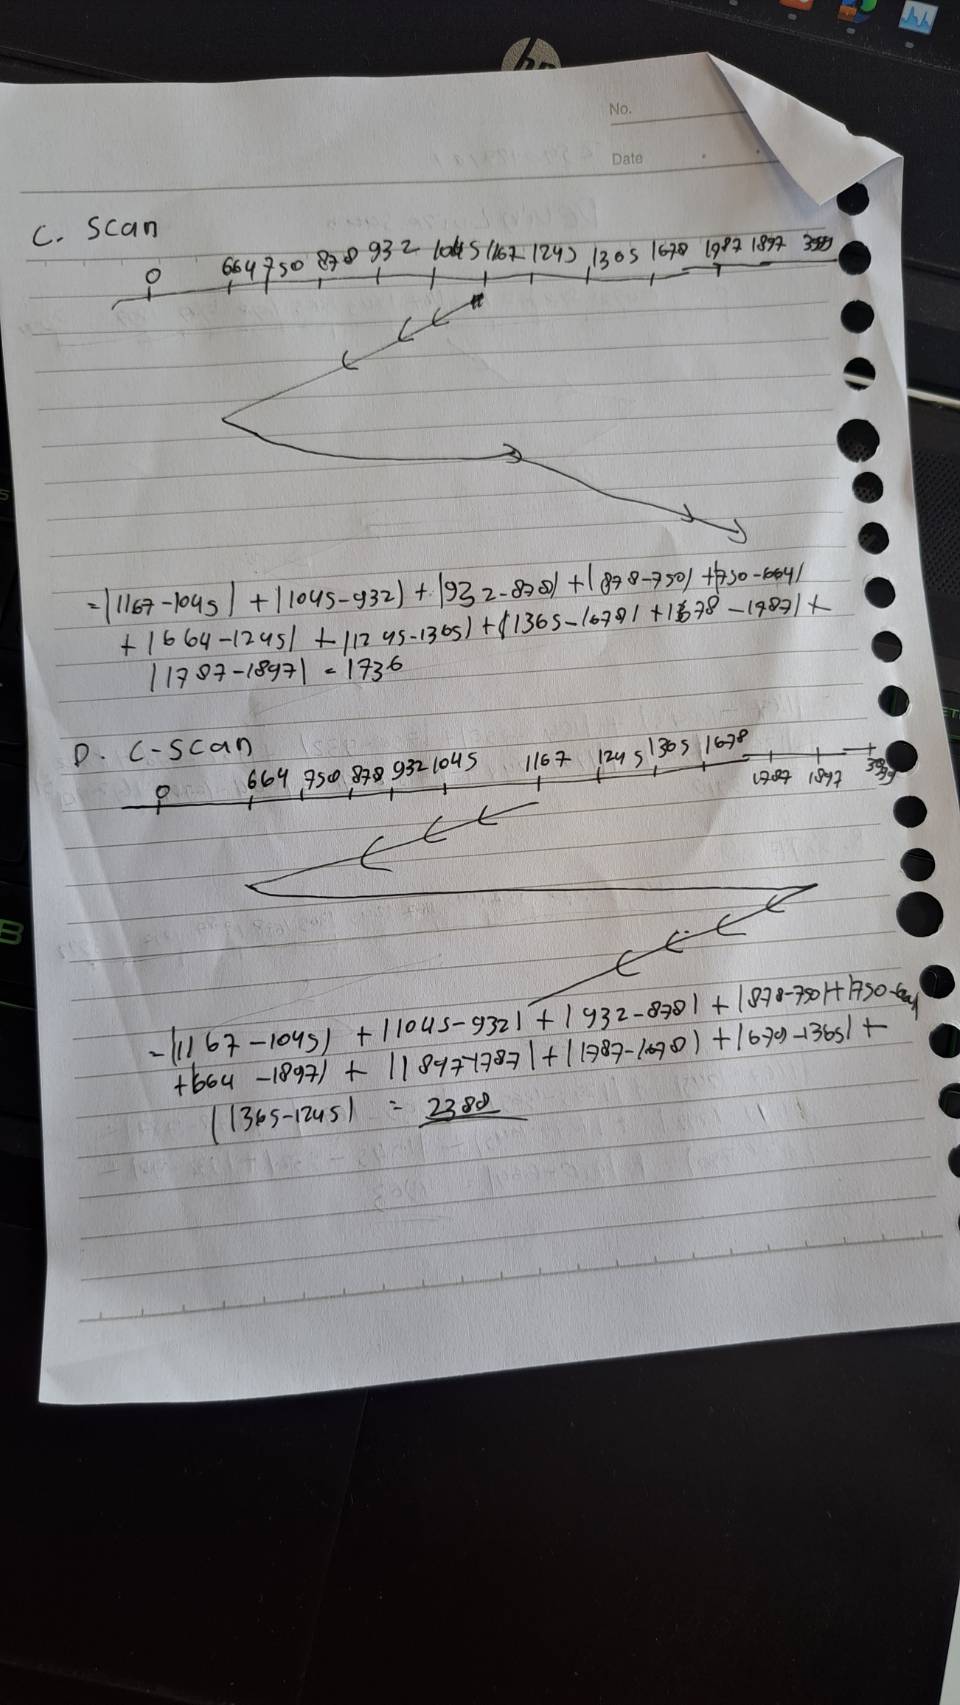 hp
No.
Date
C. Scan
0 664 750 878 932 1045 1167 1245 1365 1678 1787 1897 3999
=|1167-1045| + |1045-932| + |932-878| + |878-750| + |750-664|
+ |664-1245| + |1245-1365| + |1365-1678| + |1678-1787| +
|1787-1897| = 1736
D. C-Scan
0 664 750 878 932 1045 1167 1245 1365 1678 1787 1897 3999
=|1167-1045| + |1045-932| + |932-878| + |878-750| + |750-664|
+|664-1897| + |1897-1787| + |1787-1678| + |1678-1365| +
|1365-1245| = 2388